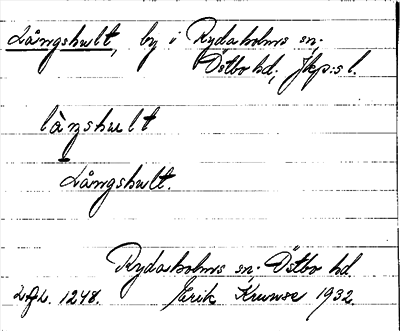 Långshult, by i Rydaholms sn;
Östbo hd, Jkp:s l.
làŋshult
Långshult.
Rydaholms sn; Östbo hd.
1248. Erik Krunse 1932.